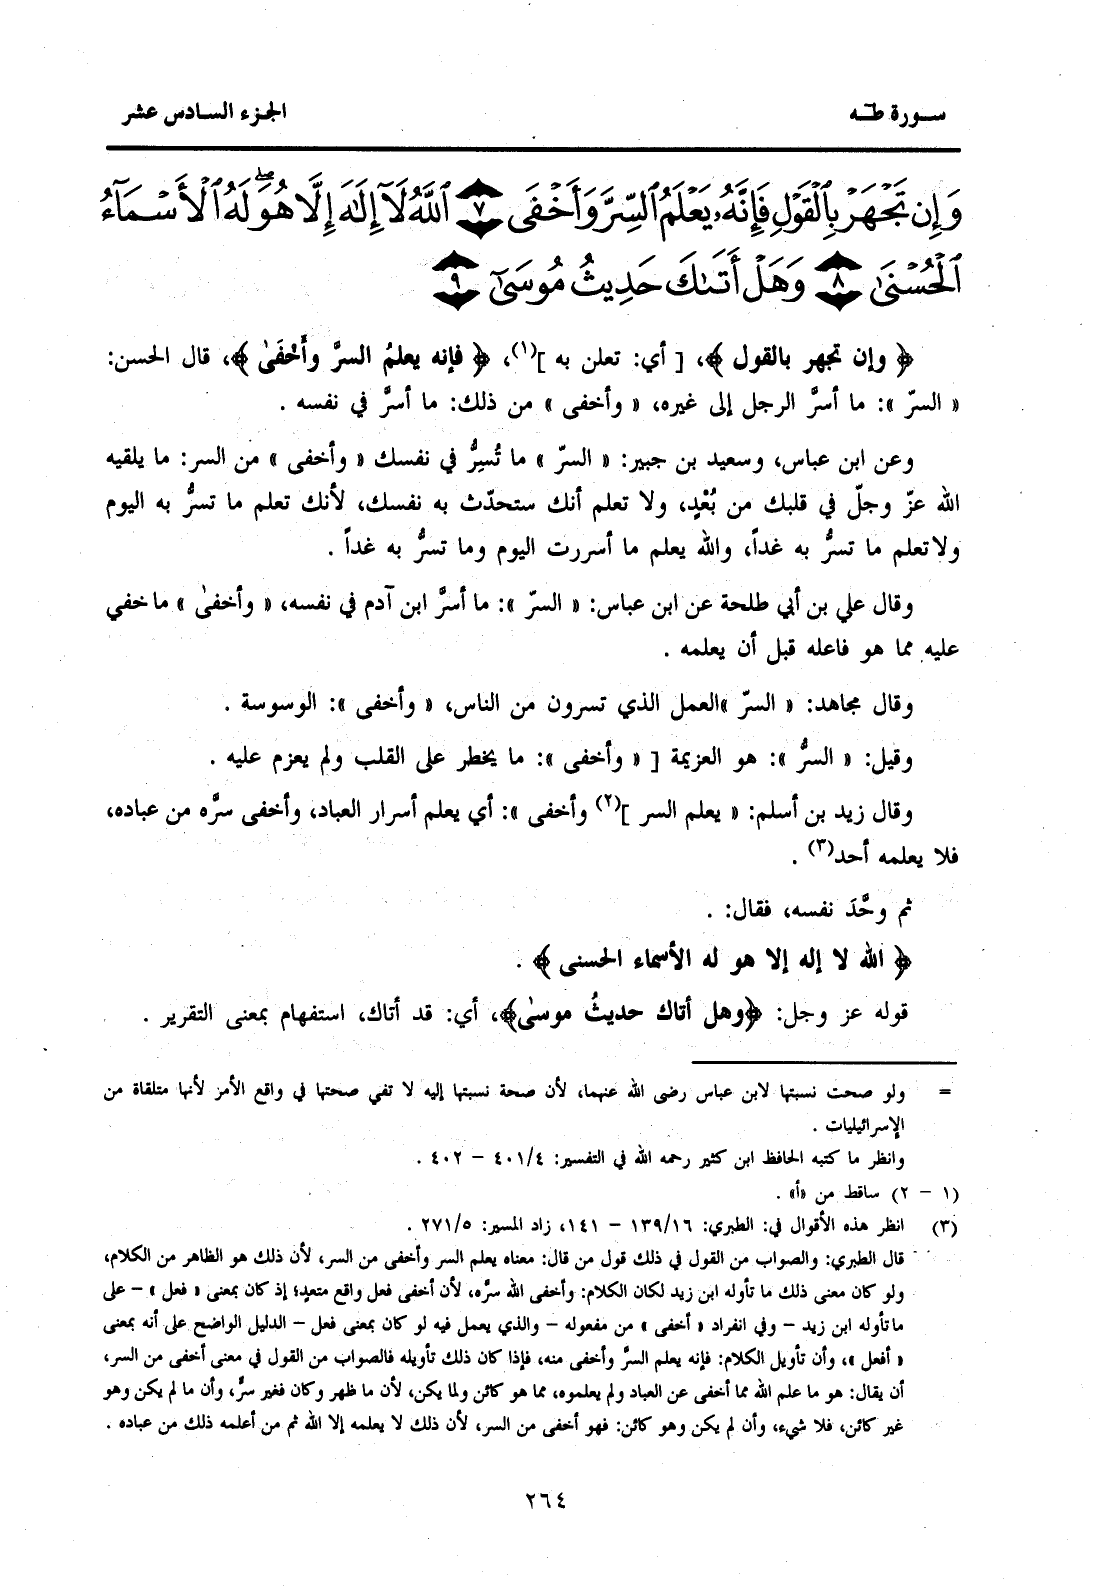 سورة طه
الجزء السادس عشر
وَإِن تَجْهَرْ بِٱلْقَوْلِ فَإِنَّهُۥ يَعْلَمُ ٱلسِّرَّ وَأَخْفَى ٧ ٱللَّهُ لَآ إِلَٰهَ إِلَّا هُوَۖ لَهُ ٱلْأَسْمَآءُ
ٱلْحُسْنَىٰ ٨ وَهَلْ أَتَىٰكَ حَدِيثُ مُوسَىٰٓ ٩
﴿ وإن تجهر بالقول ﴾، [ أي: تعلن به ](١)، ﴿ فإنه يعلمُ السرَّ وأَخْفَىٰ ﴾، قال الحسن:
« السرّ »: ما أسرَّ الرجل إلى غيره، « وأخفى » من ذلك: ما أسرَّ في نفسه .
وعن ابن عباس، وسعيد بن جبير: « السرّ » ما تُسِرُّ في نفسك « وأخفى » من السر: ما يلقيه
الله عزّ وجلّ في قلبك من بُعْدٍ، ولا تعلم أنك ستحدّث به نفسك، لأنك تعلم ما تسرُّ به اليوم
ولا تعلم ما تسرُّ به غداً، والله يعلم ما أسررت اليوم وما تسرُّ به غداً .
وقال علي بن أبي طلحة عن ابن عباس: « السرّ »: ما أسرَّ ابن آدم في نفسه، « وأخفىٰ » ما خفي
عليه مما هو فاعله قبل أن يعلمه .
وقال مجاهد: « السرّ »العمل الذي تسرون من الناس، « وأخفى »: الوسوسة .
وقيل: « السرُّ »: هو العزيمة [ « وأخفى »: ما يخطر على القلب ولم يعزم عليه .
وقال زيد بن أسلم: « يعلم السر ](٢) وأخفى »: أي يعلم أسرار العباد، وأخفى سرَّه من عباده،
فلا يعلمه أحد(٣) .
ثم وحَّدَ نفسه، فقال: .
﴿ الله لا إله إلا هو له الأسماء الحسنى ﴾ .
قوله عز وجل: ﴿وهل أتاك حديثُ موسىٰ﴾، أي: قد أتاك، استفهام بمعنى التقرير .
= ولو صحت نسبتها لابن عباس رضى الله عنهما، لأن صحة نسبتها إليه لا تفي صحتها في واقع الأمر لأنها متلقاة من
الإسرائيليات .
وانظر ما كتبه الحافظ ابن كثير رحمه الله في التفسير: ٤٠١/٤ – ٤٠٢ .
(١ – ٢) ساقط من «أ» .
(٣) انظر هذه الأقوال في: الطبري: ١٣٩/١٦ – ١٤١، زاد المسير: ٢٧١/٥ .
قال الطبري: والصواب من القول في ذلك قول من قال: معناه يعلم السر وأخفى من السر، لأن ذلك هو الظاهر من الكلام،
ولو كان معنى ذلك ما تأوله ابن زيد لكان الكلام: وأخفى الله سرَّه، لأن أخفى فعل واقع متعدٍ؛ إذ كان بمعنى « فعل » – على
ما تأوله ابن زيد – وفي انفراد « أخفى » من مفعوله – والذي يعمل فيه لو كان بمعنى فعل – الدليل الواضح على أنه بمعنى
« أفعل »، وأن تأويل الكلام: فإنه يعلم السرَّ وأخفى منه، فإذا كان ذلك تأويله فالصواب من القول في معنى أخفى من السر،
أن يقال: هو ما علم الله مما أخفى عن العباد ولم يعلموه، مما هو كائن ولما يكن، لأن ما ظهر وكان فغير سرٍّ، وأن ما لم يكن وهو
غير كائن، فلا شيء، وأن لم يكن وهو كائن: فهو أخفى من السر، لأن ذلك لا يعلمه إلا الله ثم من أعلمه ذلك من عباده .
٢٦٤